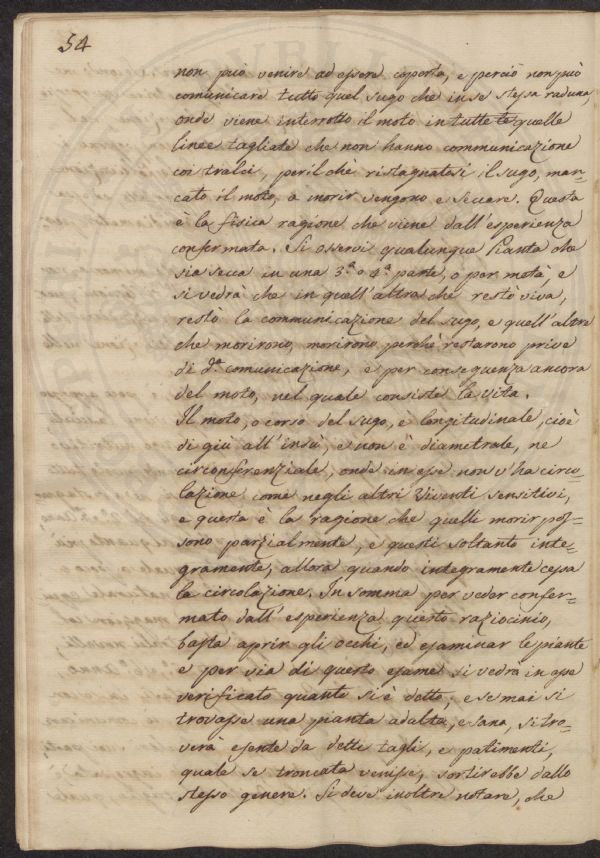 54
non può venire ad essere coperta, e perciò non può
comunicare tutto quel sugo che in se stessa raduna,
onde viene interrotto il moto in tutte te quelle
linee tagliate che non hanno communicazione
coi tralci, per il chè ristagnatosi il sugo, man-
cato il moto, a morir vengono e seccare. Questa
è la fisica ragione che viene dall'esperienza
confermata. Si osservi qualunque Pianta che
sia secca in una 3.ª o 4.ª parte, o per metà, e
si vedrà che in quell'altra che restò viva,
restò la communicazione del sugo, e quell'altre
che morirono, morirono perchè restarono prive
di d.ª comunicazione, e per conseguenza ancora
del moto, nel quale consiste la vita.
Il moto, o corso del sugo, è longitudinale, cioè
di giù all'insù, e non è diametrale, ne
circonferenziale, onde in esse non v'ha circo-
lazione come negli altri Viventi sensitivi,
e questa è la ragione che quelle morir pos-
sono parzialmente, e questi soltanto inte-
gramente, allora quando integramente cessa
la circolazione. In somma per veder confer-
mato dall'esperienza questo raziocinio,
basta aprir gli occhi, ed esaminar le piante
e per via di questo esame si vedrà in esse
verificato quanto si è detto; e se mai si
trovasse una pianta adulta, e sana, si tro-
verà esente da detti tagli, e patimenti,
quale se troncata venisse, sortirebbe dallo
stesso genere. Si deve inoltre notare, che